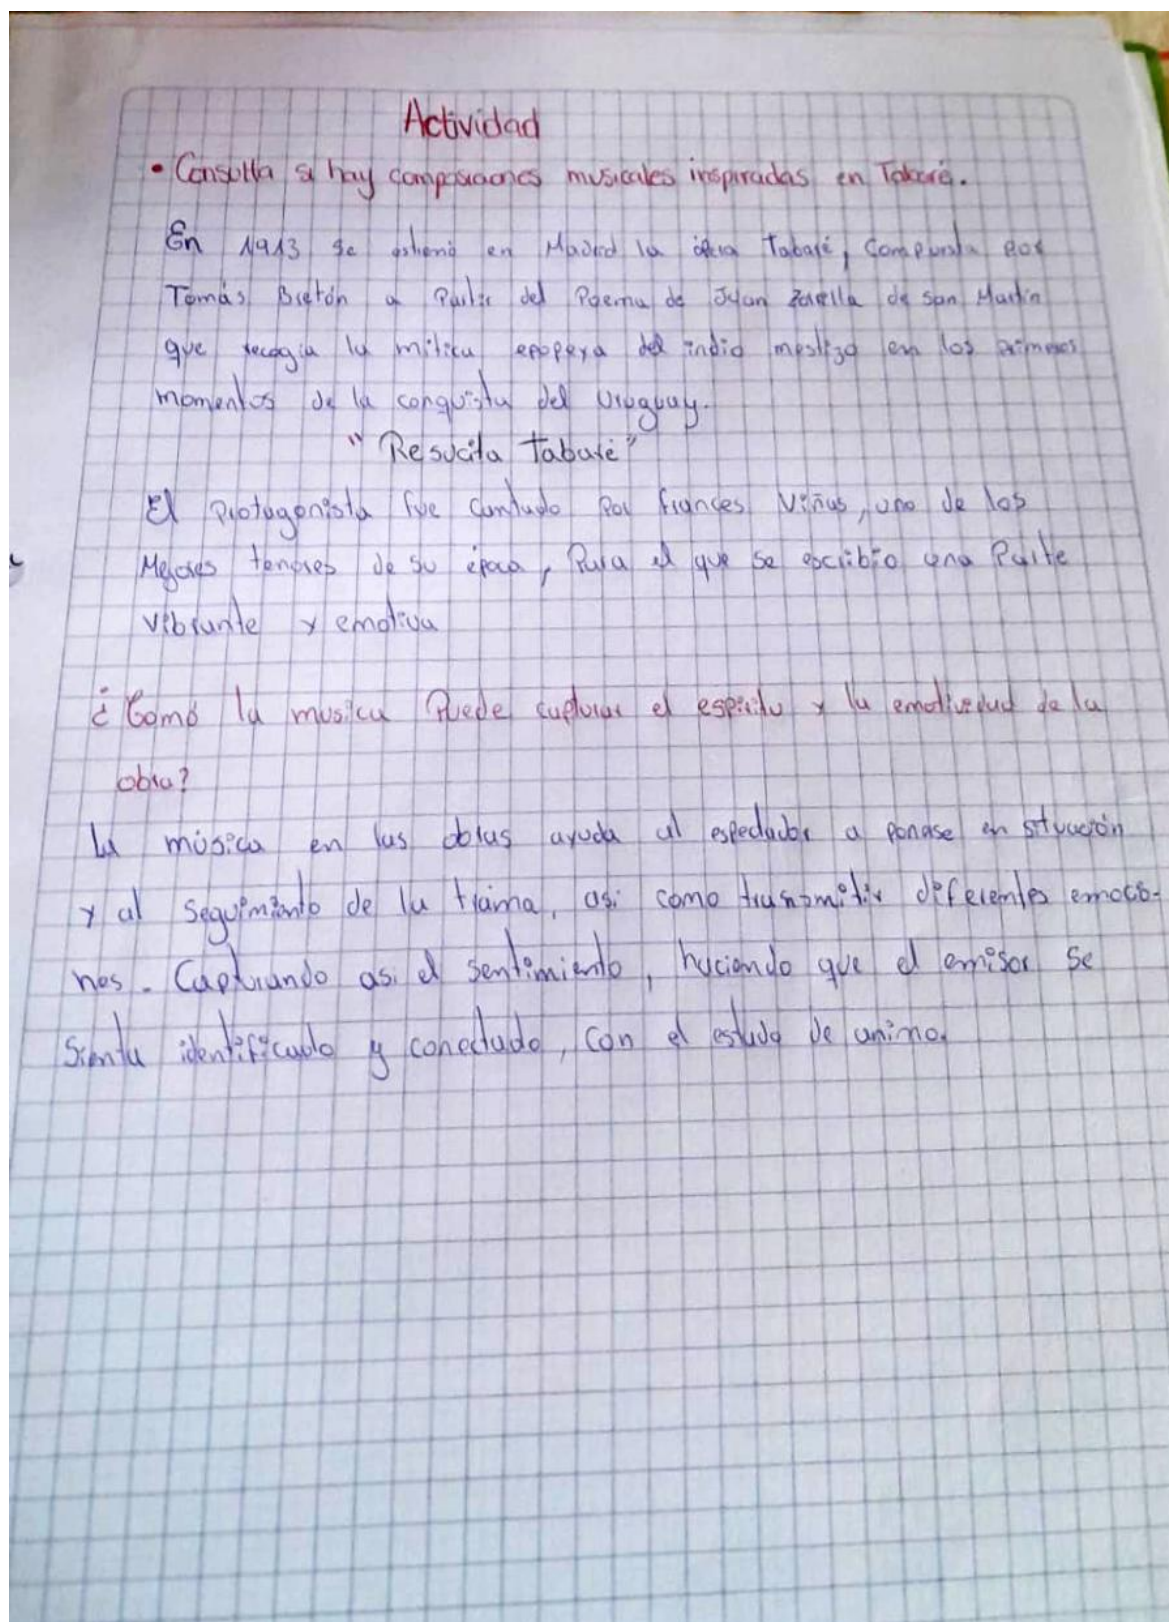 Actividad
• Consulta si hay composiciones musicales inspiradas en Tabaré.
En 1913 se estrenó en Madrid la ópera Tabaré, compuesta por
Tomás Bretón a Partir del Poema de Juan Zorrilla de San Martín
que recogía la mítica epopeya del indio mestizo en los primeros
momentos de la conquista del Uruguay.
"Resucita Tabaré"
El protagonista fue cantado Por frances Viñas, uno de los
Mejores tenores de su época, Para el que se escribio una Parte
vibrante y emotiva
¿Comó la musica Puede capturar el espiritu y la emotividad de la
obra?
La música en las obras ayuda al espectador a ponerse en situación
y al seguimiento de la trama, asi como transmitir diferentes emocio-
nes. Capturando asi el sentimiento, haciendo que el emisor se
Sienta identificado y conectado, con el estado de animo.